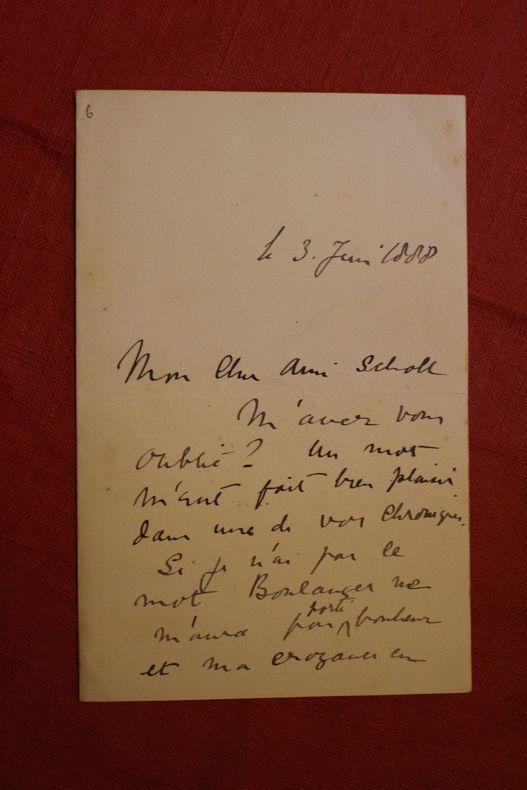 6
le 3. Juin 1888
Mon Cher Ami Scholl
M'avez vous
oublié? Un mot
m'eut fait bien plaisir
dans une de vos chroniques.
Si je n'ai pas le
mot Boulanger ne
m'aura pas porté bonheur
et ma croyance en